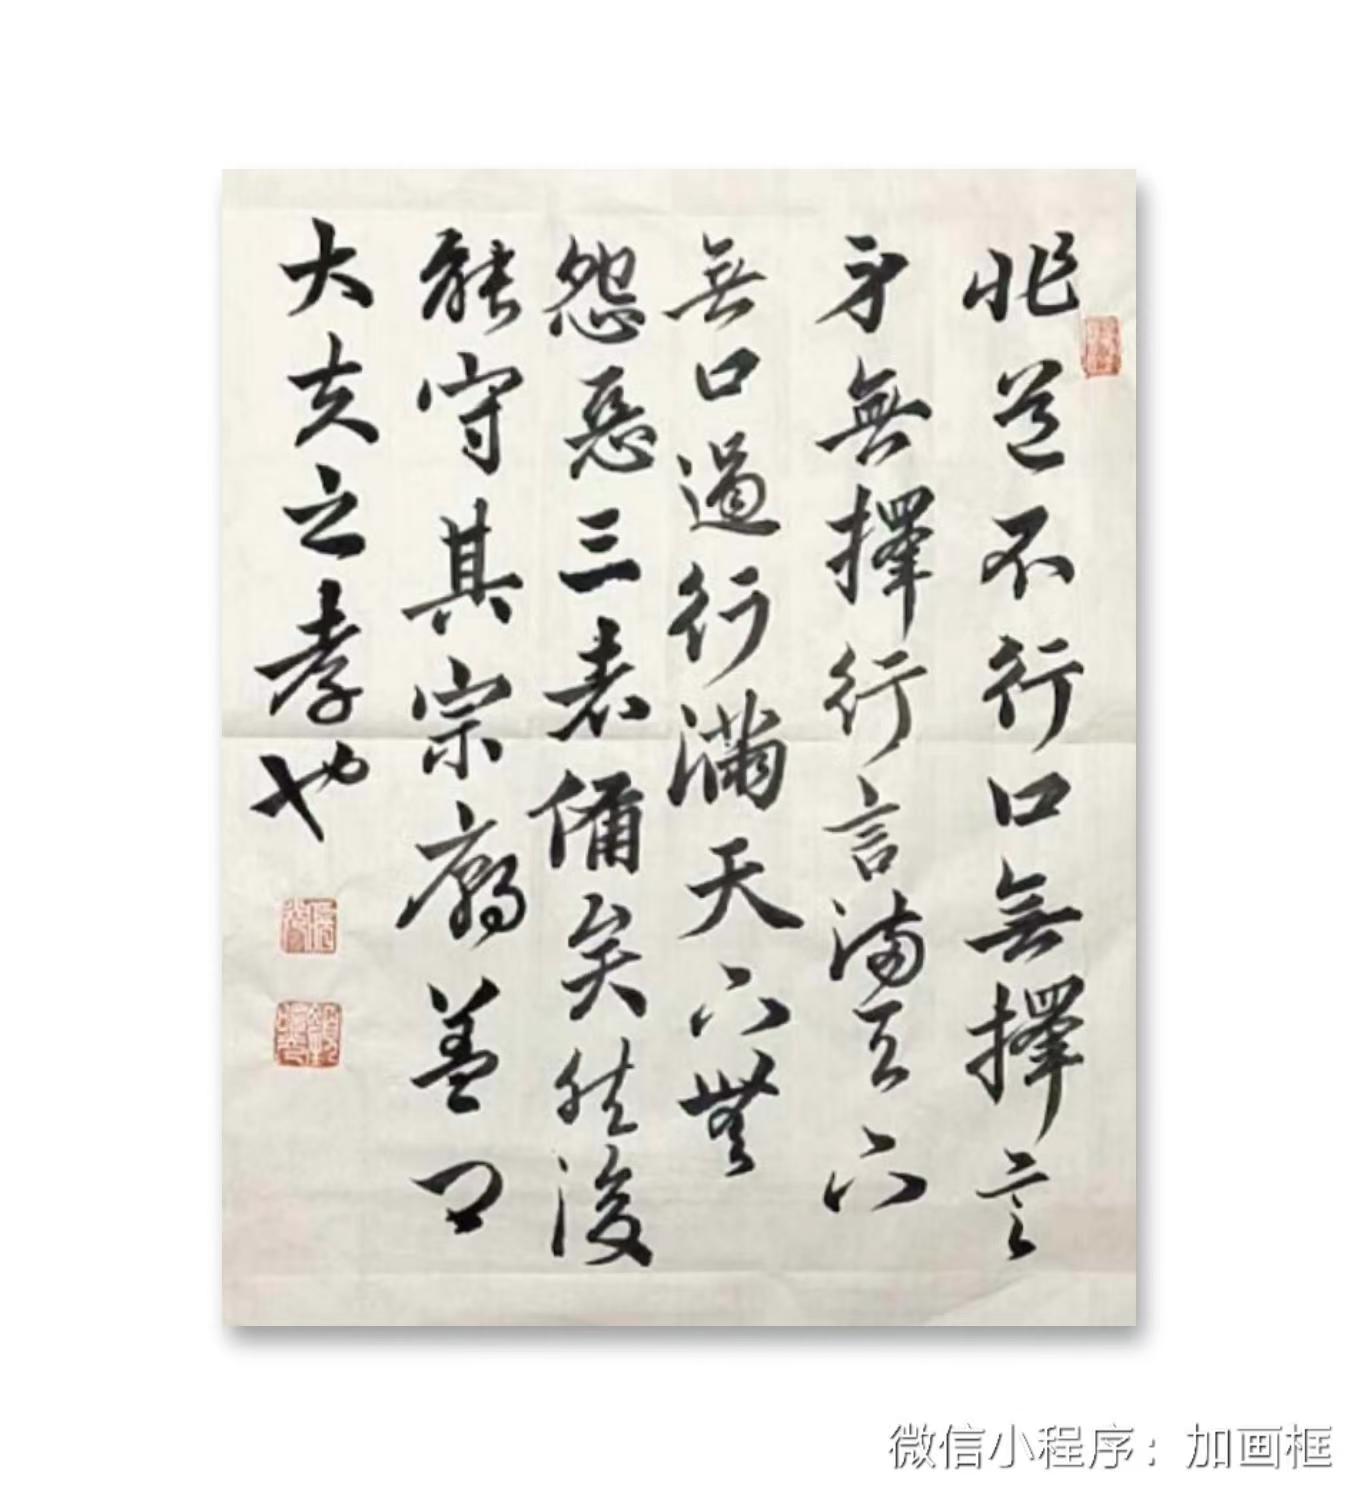 非道不行口無擇言
身無擇行言滿天下
無口過行滿天下無
怨惡三者備矣然後
能守其宗廟蓋卿
大夫之孝也
微信小程序：加画框